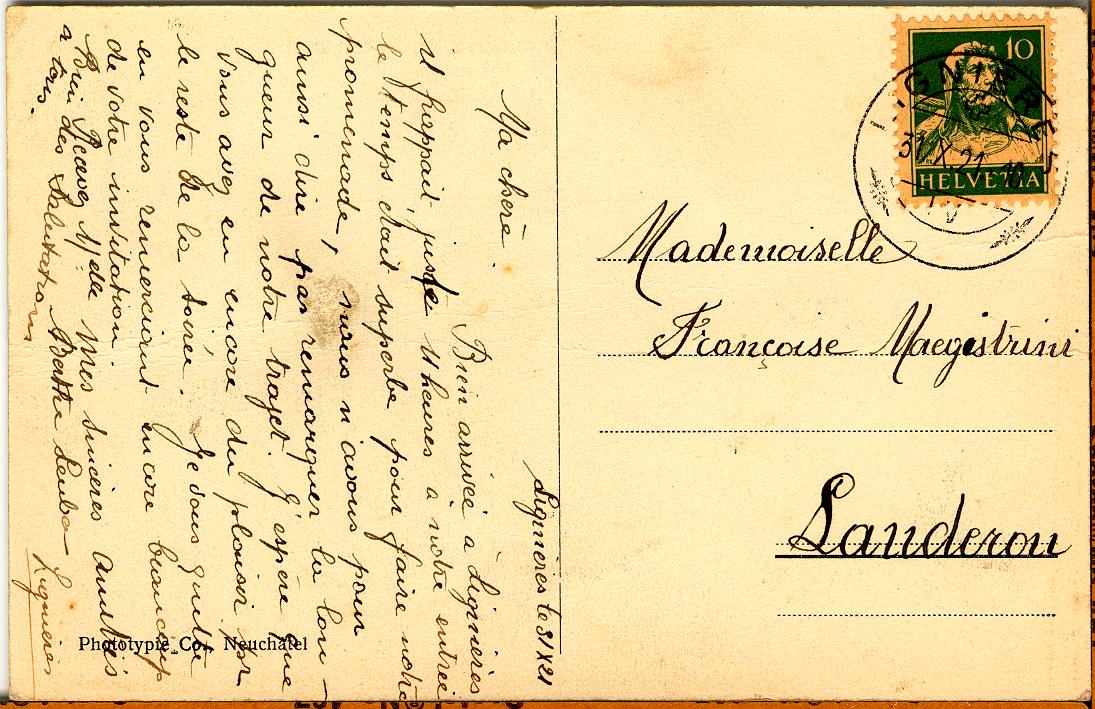 Lignières le 31 X 21
Ma chère.
Bien arrivée à Lignières
il frappait juste 11 heures à notre entrée
le temps était superbe pour faire notre
promenade, nous n'avons pour
ainsi dire pas remarquer la lon-
gueur de notre trajet. J'espère que
vous avez eu encore du plaisir
le reste de la soirée. Je vous quitte
en vous remerciant encore beaucoup
de votre invitation.
Recevez Melle mes sincères amitiés
à tous. Bien des Salutations Berthe
Lignières
Phototypie Co., Neuchâtel
10
HELVETIA
LIGNIÈRES
31.X.21
Mademoiselle
Françoise Maegistrini
Landeron